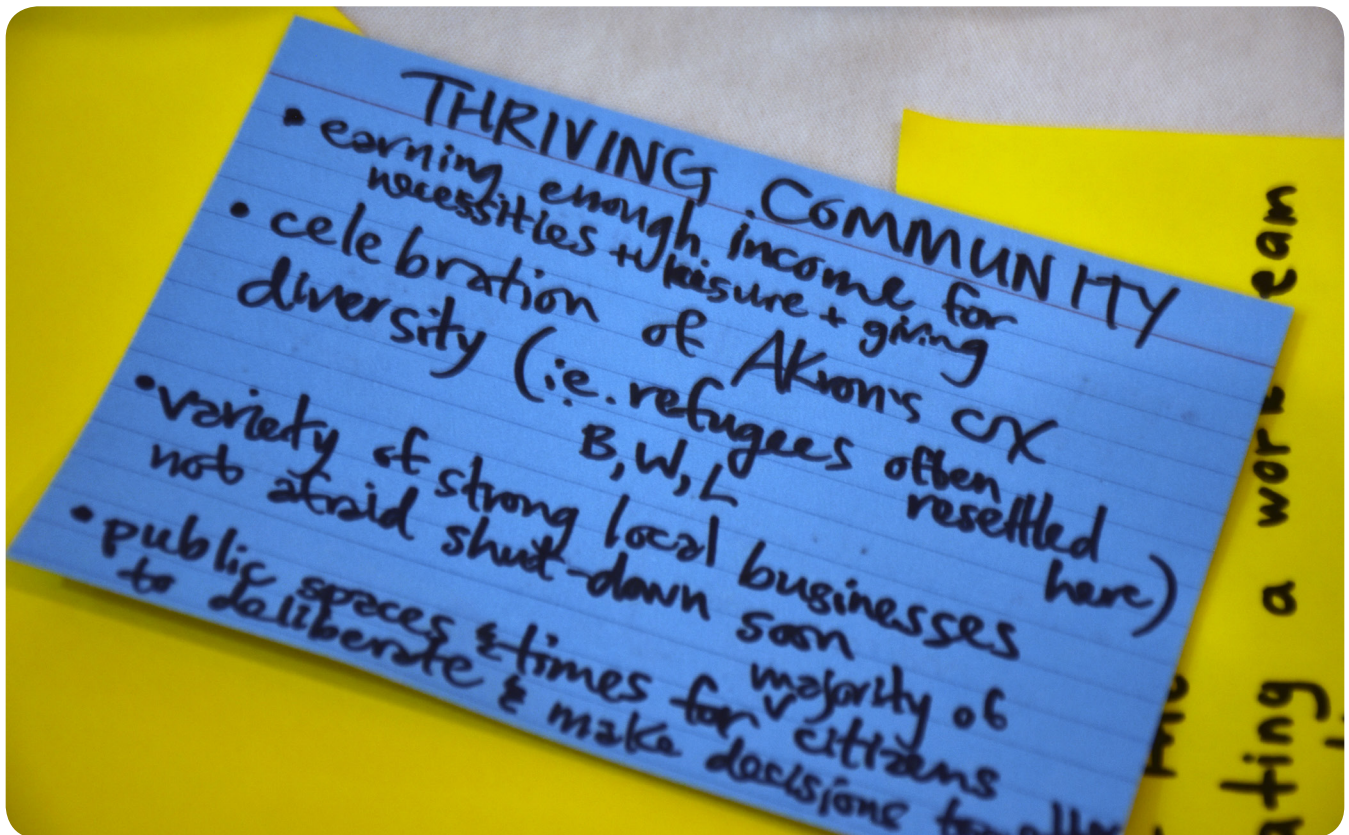 THRIVING COMMUNITY
• earning enough income for
necessities + leisure + giving
• celebration of Akron's
diversity (i.e. refugees often
resettled
here)
B, W, L
• variety of strong local businesses
not afraid shut-down soon
• public spaces & times for majority of
citizens
to deliberate & make decisions
ean
a work
ating